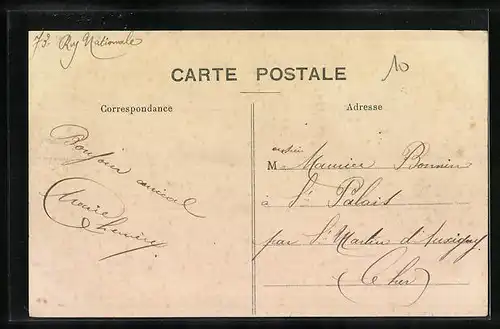 73. Rue Nationale
10
CARTE POSTALE
Correspondance
Adresse
Bonjour amical
M Maurice Bonnin
à St Palais
par St Martin d'Auxigny
(Cher)